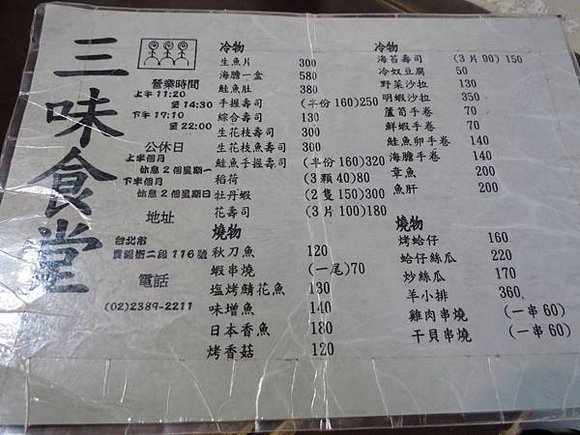 三味食堂
營業時間
上午 11:20
至 14:30
下午 17:10
至 22:00
公休日
上半個月
休息 2 個星期一
下半個月
休息 2 個星期日
地址
台北市
貴陽街二段 116 號
電話
(02)2389-2211
冷物
生魚片 300
海膽一盒 580
鮭魚肚 380
手握壽司 (半份 160)250
綜合壽司 130
生花枝壽司 300
生花枝魚壽司 300
鮭魚手握壽司 (半份 160)320
稻荷 (3 顆 40)80
牡丹蝦 (2 隻 150)300
花壽司 (3 片 100)180
燒物
秋刀魚 120
蝦串燒 (一尾)70
塩烤鯖花魚 130
味增魚 140
日本香魚 180
烤香菇 120
冷物
海苔壽司 (3 片 90) 150
冷奴豆腐 50
野菜沙拉 130
明蝦沙拉 350
蘆筍手卷 70
鮮蝦手卷 70
鮭魚卵手卷 140
海膽手卷 140
章魚 200
魚肝 200
燒物
烤蛤仔 160
蛤仔絲瓜 220
炒絲瓜 170
羊小排 360
雞肉串燒 (一串 60)
干貝串燒 (一串 60)